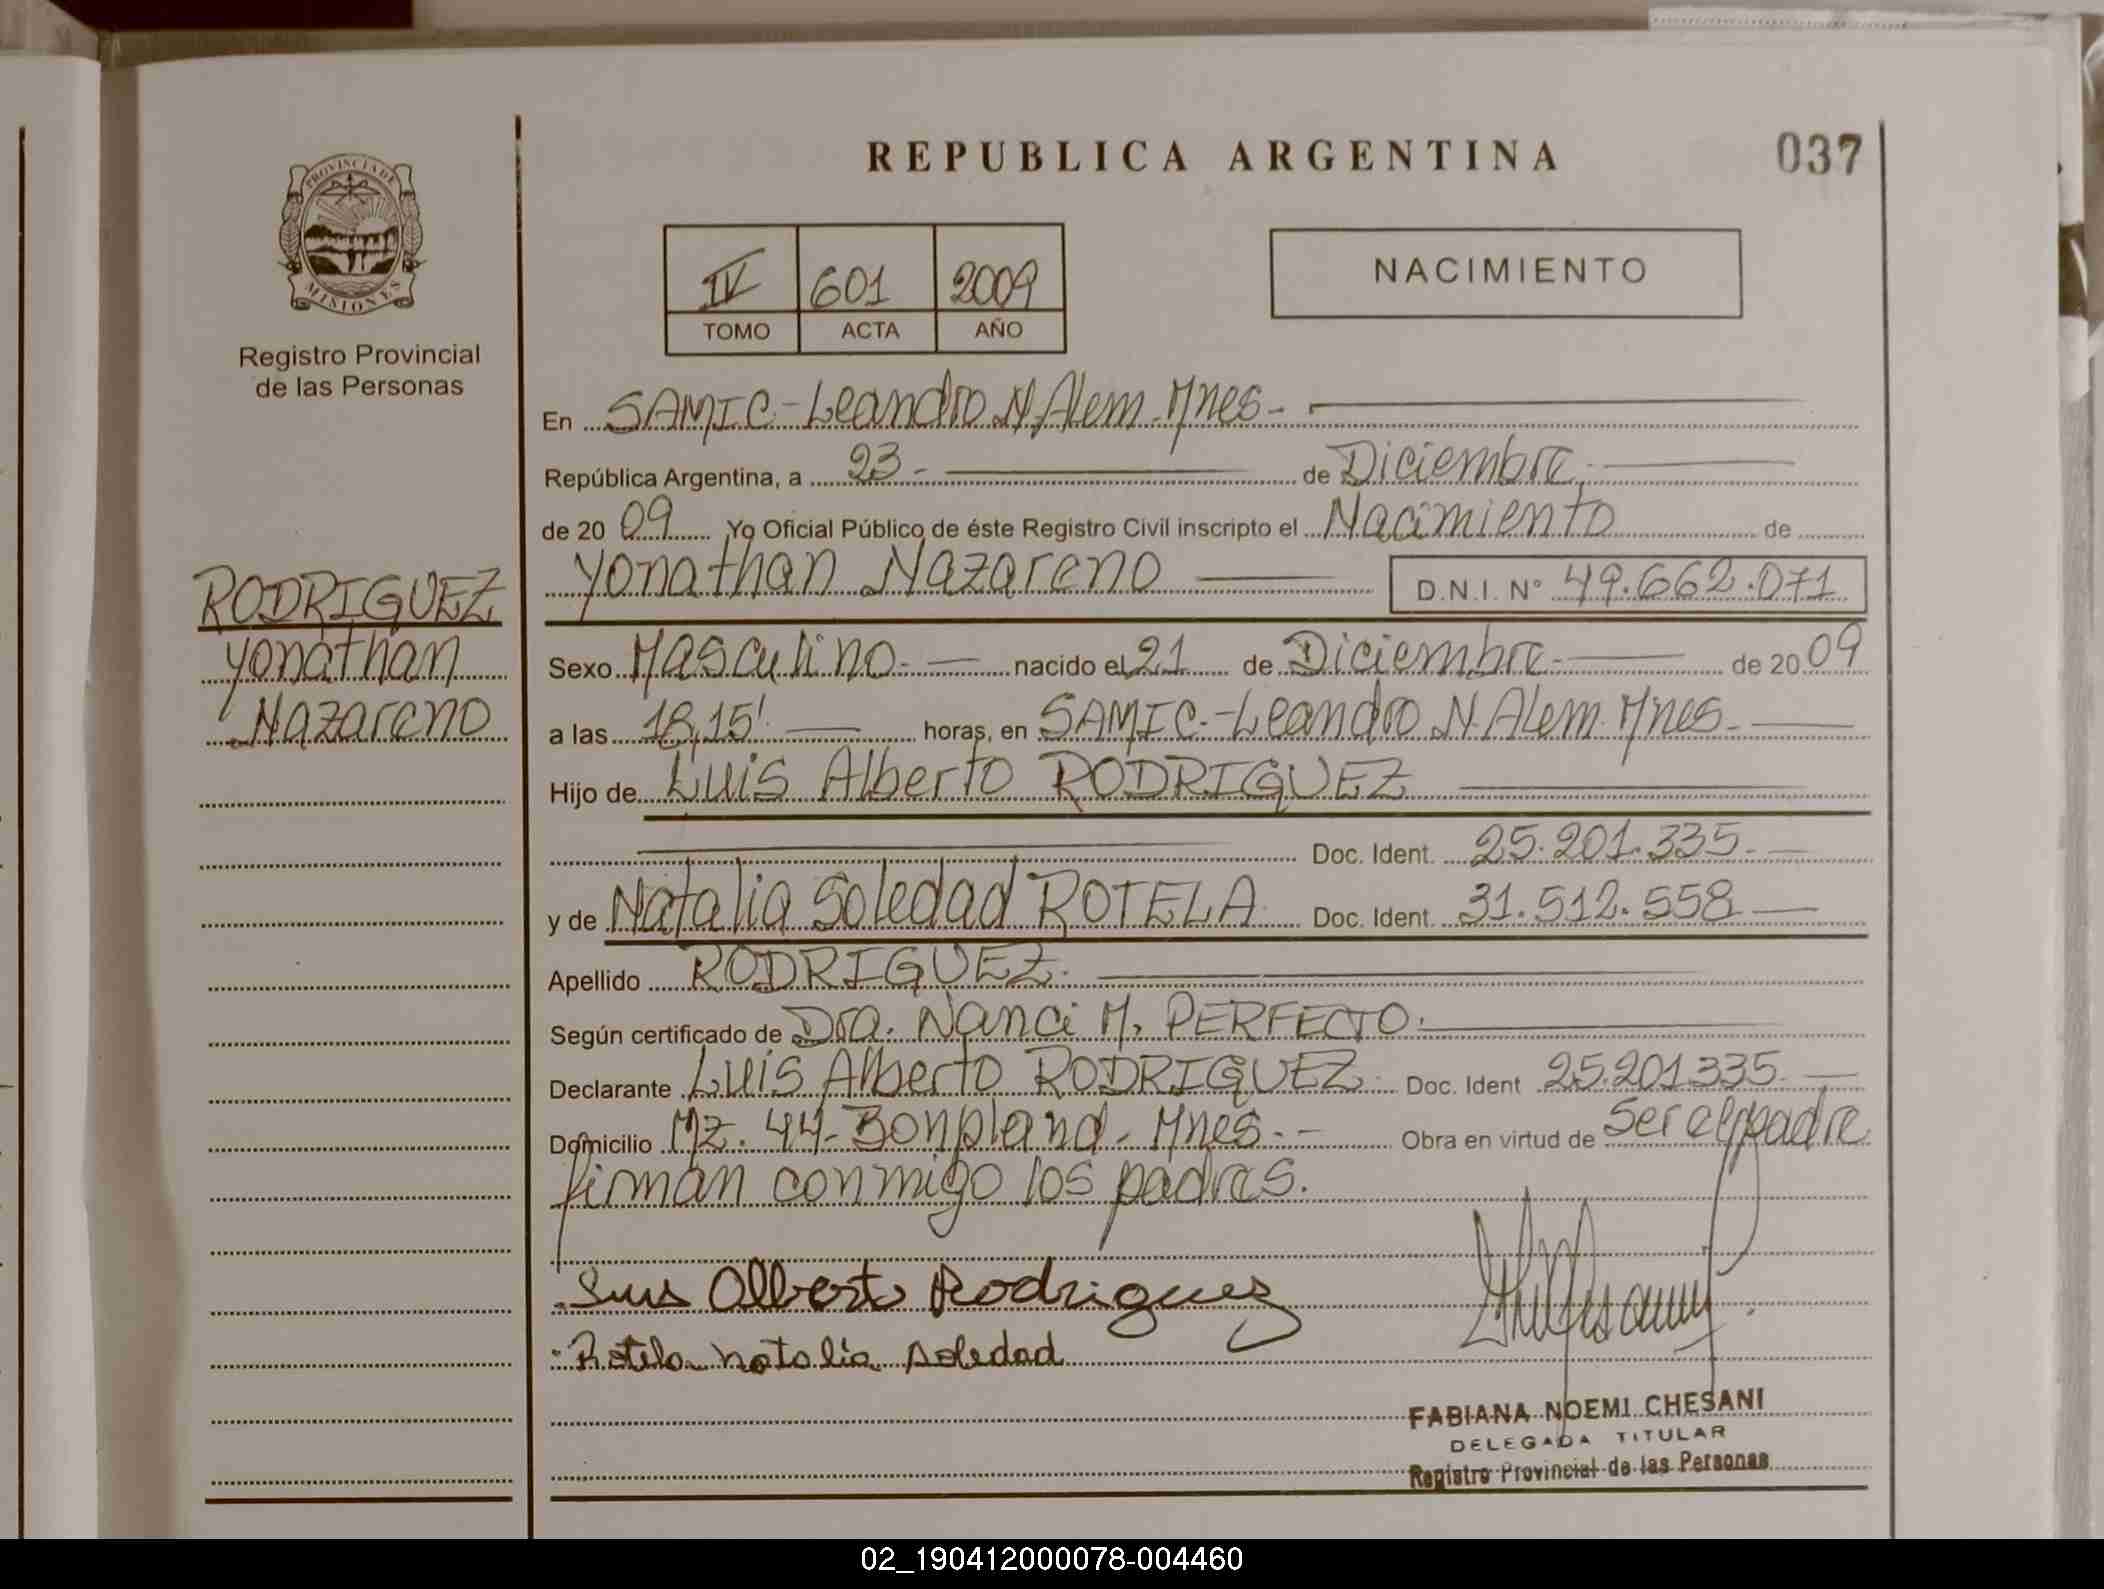 REPUBLICA ARGENTINA
037
PROVINCIA DE
MISIONES
Registro Provincial
de las Personas
IV 601 2009
TOMO ACTA AÑO
NACIMIENTO
En SAMIC-Leandro N. Alem. Mnes-
República Argentina, a 23- de Diciembre
de 2009 Yo Oficial Público de éste Registro Civil inscripto el Nacimiento de
Yonathan Nazareno D.N.I. N° 49.662.071
RODRIGUEZ
Yonathan
Nazareno
Sexo Masculino- nacido el 21 de Diciembre- de 2009
a las 18,15' horas, en SAMIC.-Leandro N Alem. Mnes-
Hijo de Luis Alberto RODRIGUEZ
Doc. Ident. 25.201.335.-
y de Natalia Soledad ROTELA Doc. Ident. 31.512.558-
Apellido RODRIGUEZ.
Según certificado de Dra. Nanci M. PERFECTO.
Declarante Luis Alberto RODRIGUEZ. Doc. Ident 25.201335.-
Domicilio Mz. 44- Bonpland- Mnes.- Obra en virtud de Ser el padre
firman conmigo los padres.
Luis Alberto Rodriguez
Rotela natalia soledad
FABIANA NOEMI CHESANI
DELEGADA TITULAR
Registro Provincial de las Personas
02_190412000078-004460